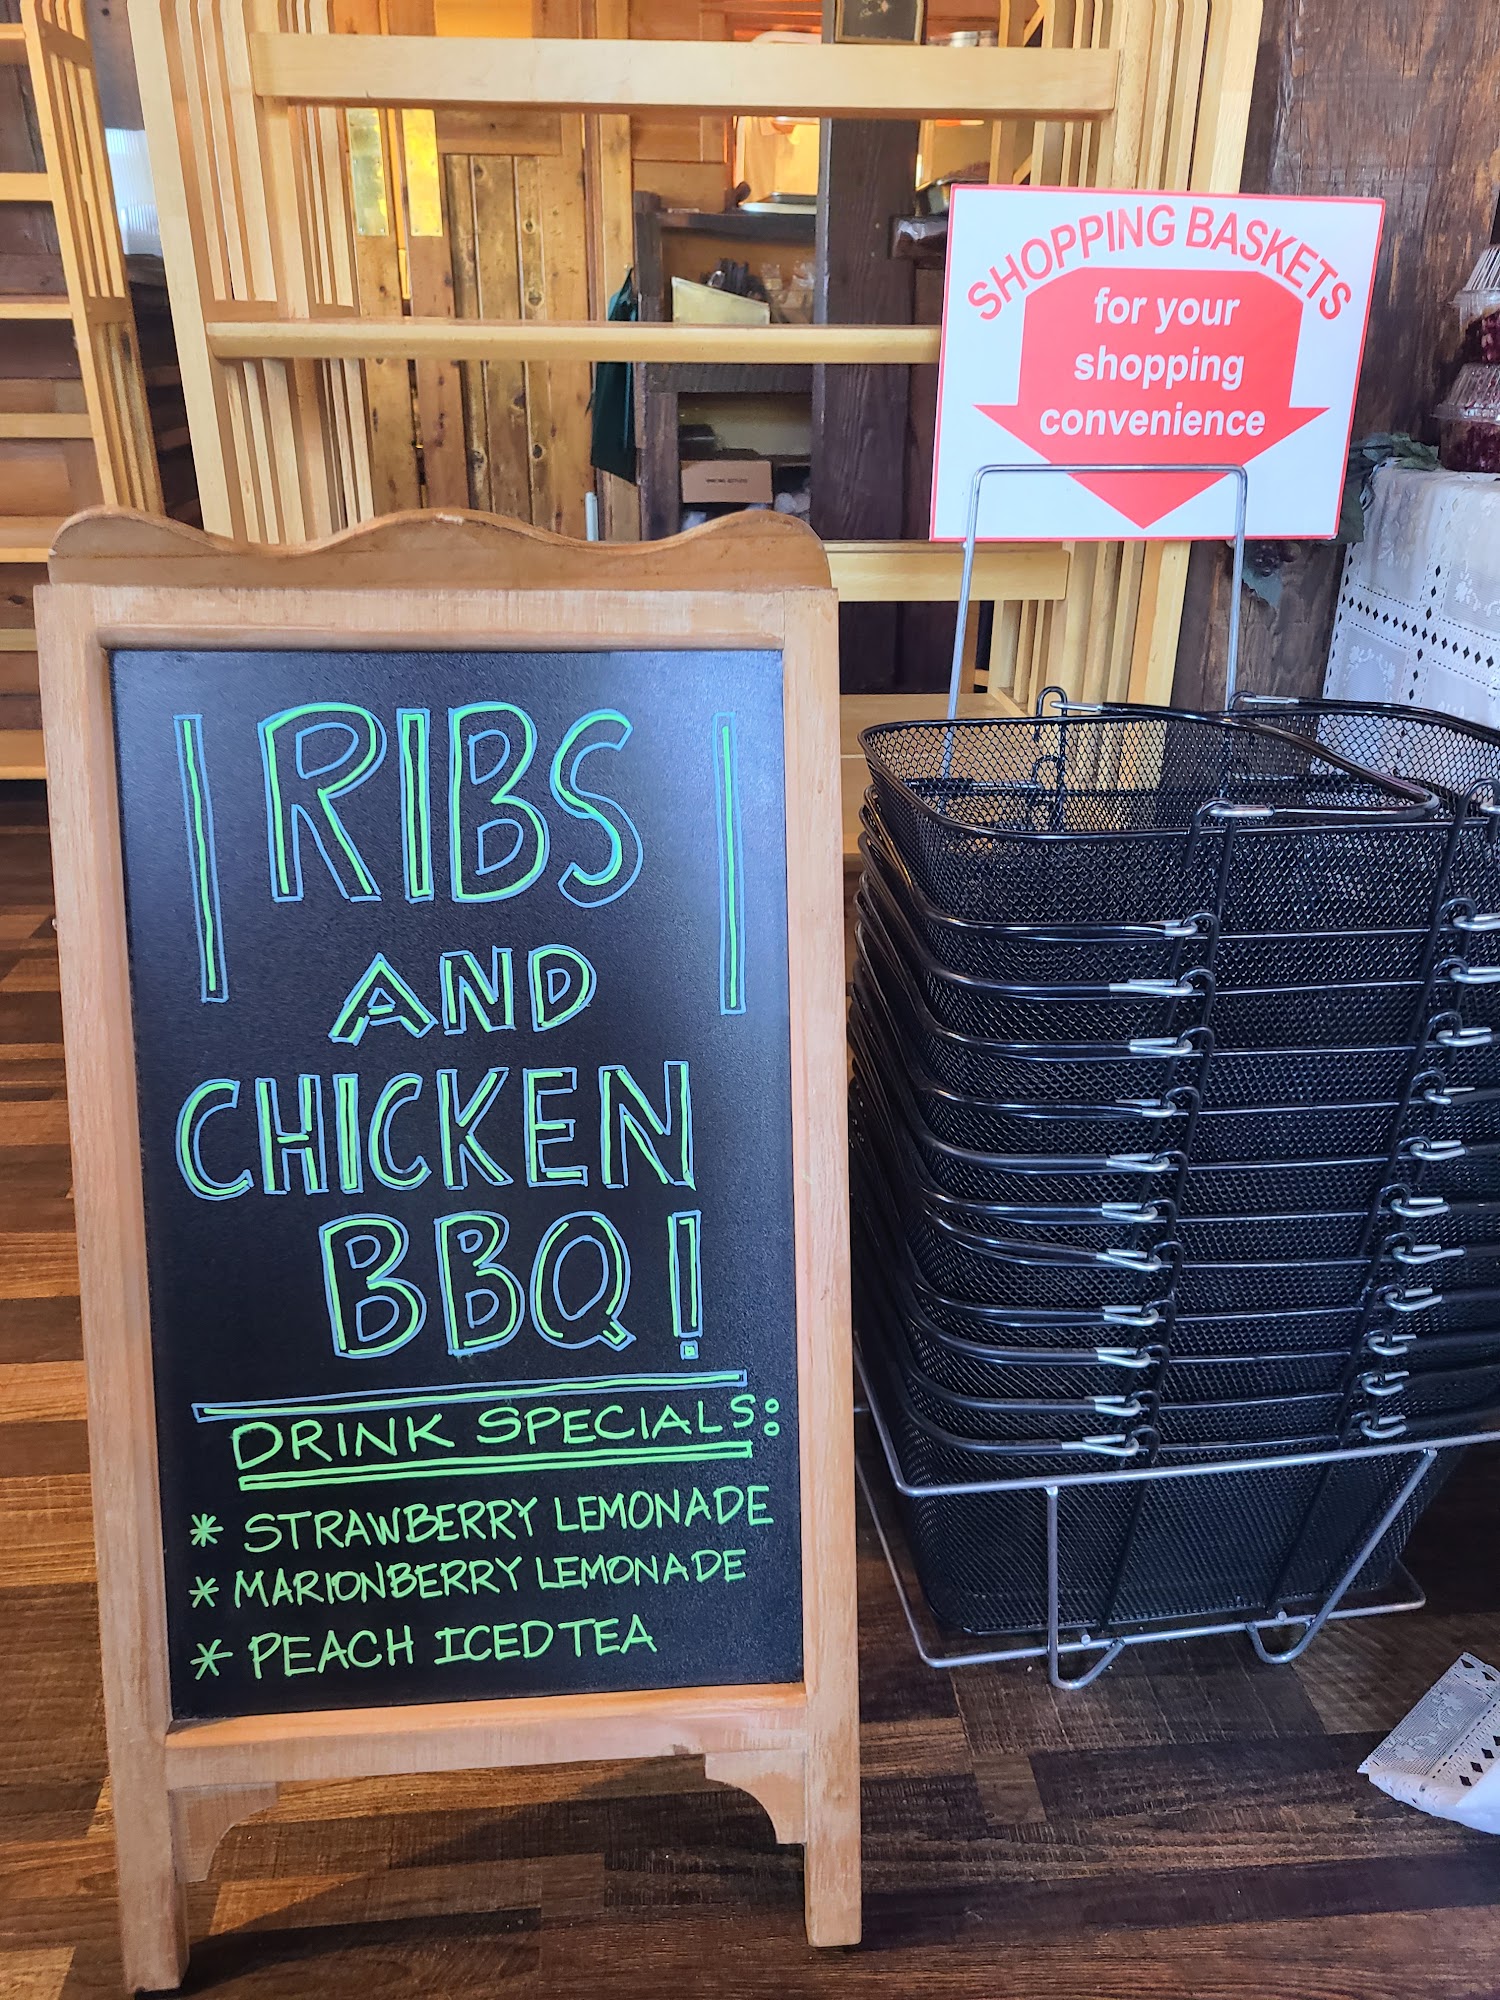 RIBS
AND
CHICKEN
BBQ!
DRINK SPECIALS:
* STRAWBERRY LEMONADE
* MARIONBERRY LEMONADE
* PEACH ICED TEA
SHOPPING BASKETS
for your
shopping
convenience